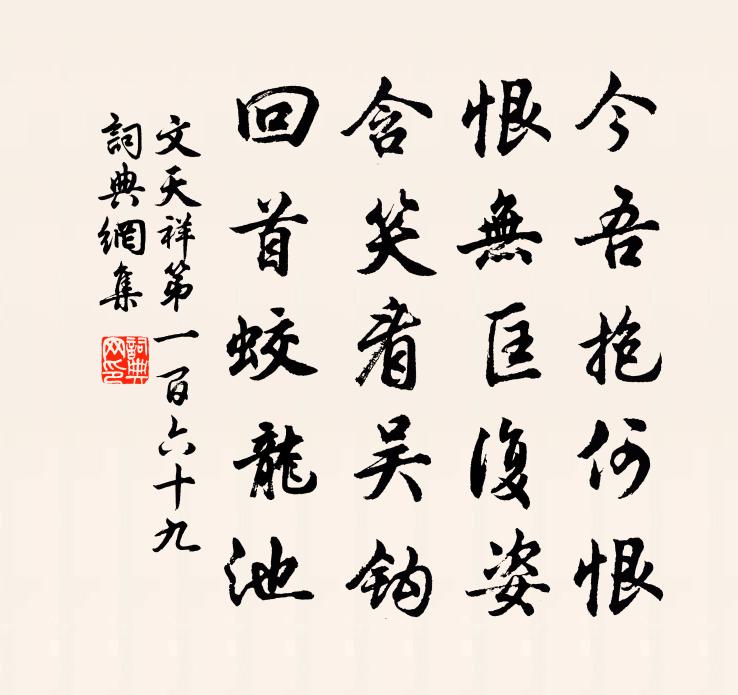 今吾抱何恨
恨無匡復姿
含笑看吴钩
回首蛟龍池
文天祥第一百六十九
詞典網集
詞典网印